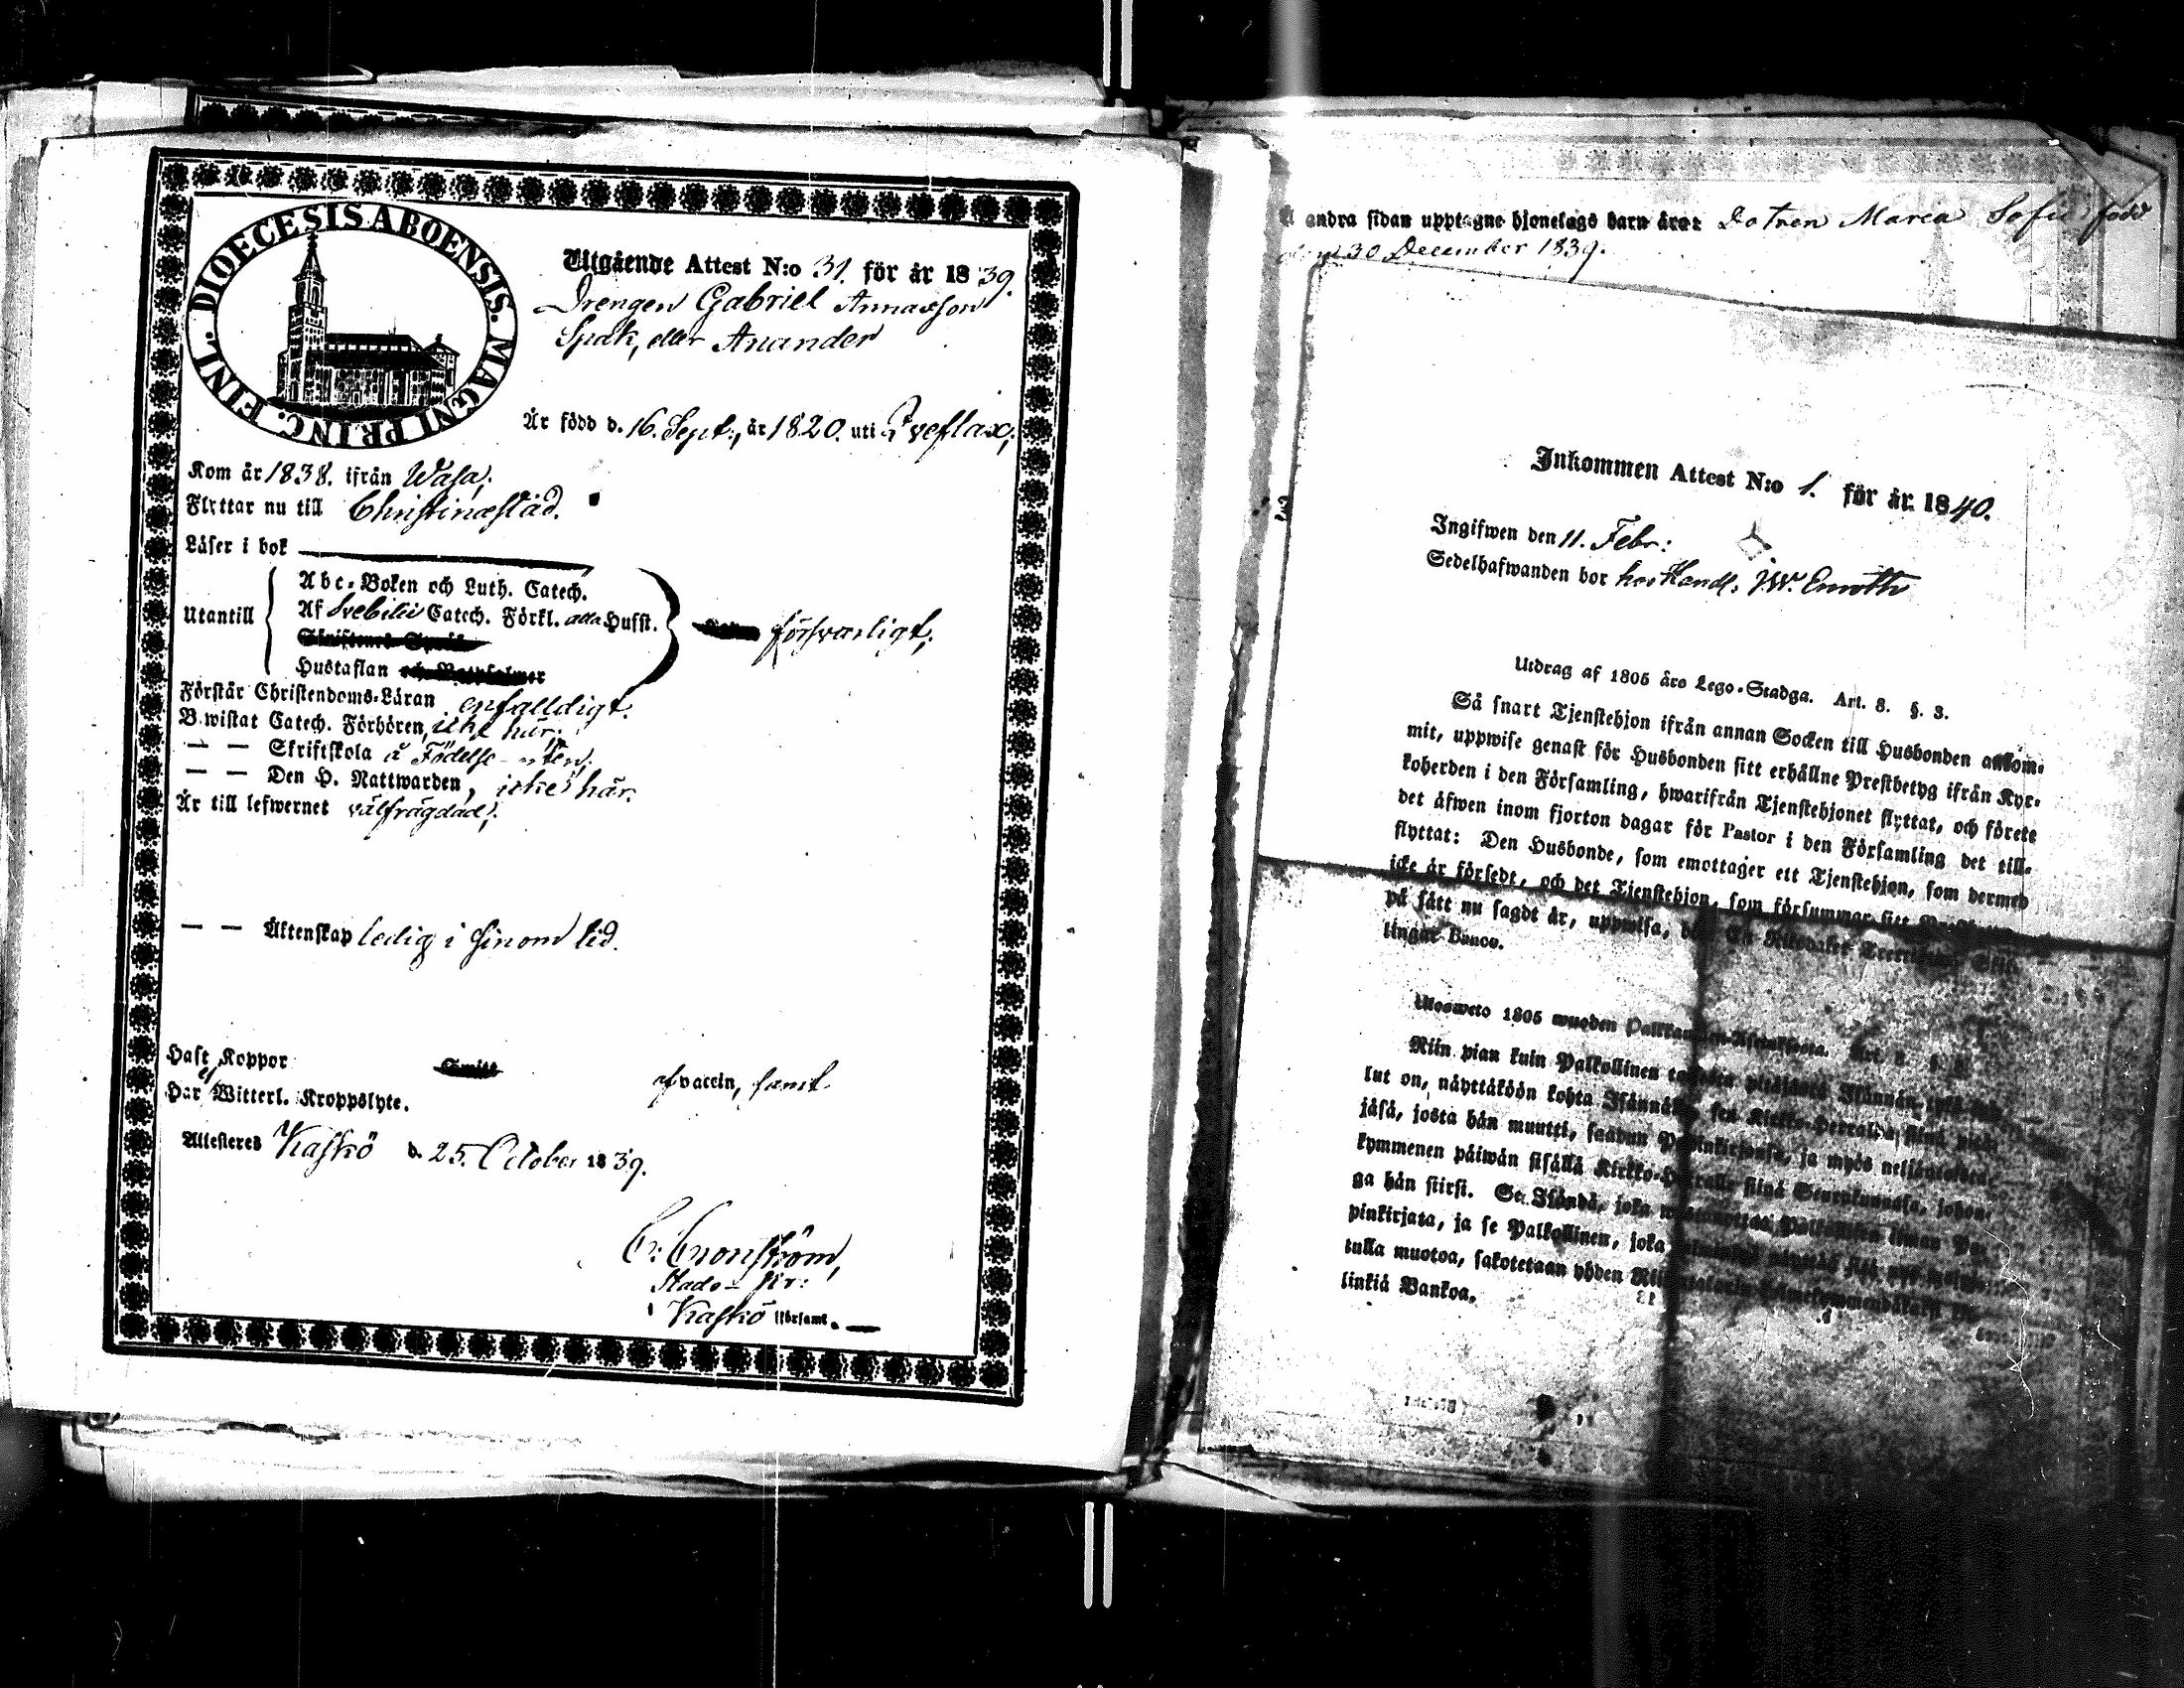 DIOECESIS ABOENSIS. MAGNI PRINC. FINL.
Utgående Attest N:o 31. för år 1839.
Drengen Gabriel Annasson
Spak, eller Anander
Är född d. 16. Sept:, år 1820. uti Qveflax;
Kom år 1838. ifrån Wasa;
Flyttar nu till Christinæstad.
Läser i bok
Abc-Boken och Luth. Catech.
Utantill Af Svebilii Catech. Förkl. alla Hufst. försvarligt;
Hustaflan
Förstår Christendoms-Läran enfalldigt.
Bewistat Catech. Förhören, icke här;
— — Skriftskola å Födelse-orten;
— — Den H. Nattwarden, icke här;
Är till lefwernet välfrägdad;
— — Äktenskap ledig i sinom tid.
Haft Koppor af vaccin, samt
Har ej Witterl. Kroppslyte.
Attesteres Kaskö d. 25. October 1839.
C: Cronström,
Stads-
Kaskö Församl.
å andra sidan upptagne hjonelags barn äro: Dotren Marea Sofie född
den 30 December 1839.
Inkommen Attest N:o 1. för år 1840.
Ingifwen den 11. Febr:
Sedelhafwanden bor hos Handl. J.W. Emoth
Utdrag af 1805 års Lego-Stadga. Art. 8. §. 3.
Så snart Tjenstehjon ifrån annan Socken till Husbonden ankom-
mit, uppwise genast för Husbonden sitt erhållne Prestbetyg ifrån Kyr-
koherden i den Församling, hwarifrån Tjenstehjonet flyttat, och förete
det äfwen inom fjorton dagar för Pastor i den Församling det till-
flyttat: Den Husbonde, som emottager ett Tjenstehjon, som dermed
icke är försedt, och det Tjenstehjon, som försummar sitt
på sätt nu sagdt är, uppwisa,
lingar Banco.
Ulosweto 1805 wuoden
Niin pian kuin Palkollinen
lut on, näyttäköön kohta
jäsä, josta hän muutti, saadun
kymmenen päiwän sisällä Kirkko-Herralle siinä Seurakunnasa, johon-
ga hän siirsi. Se Isändä, joka
pinkirjata, ja se Palkollinen, joka
tulla muotoa, sakotetaan yhden
linkiä Bankoa.